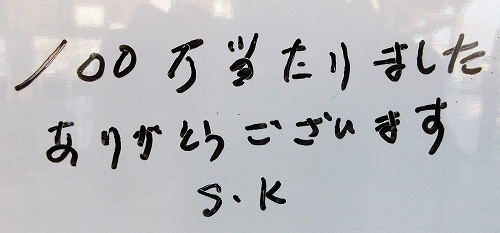 100万当たりました
ありがとうございます
S.K